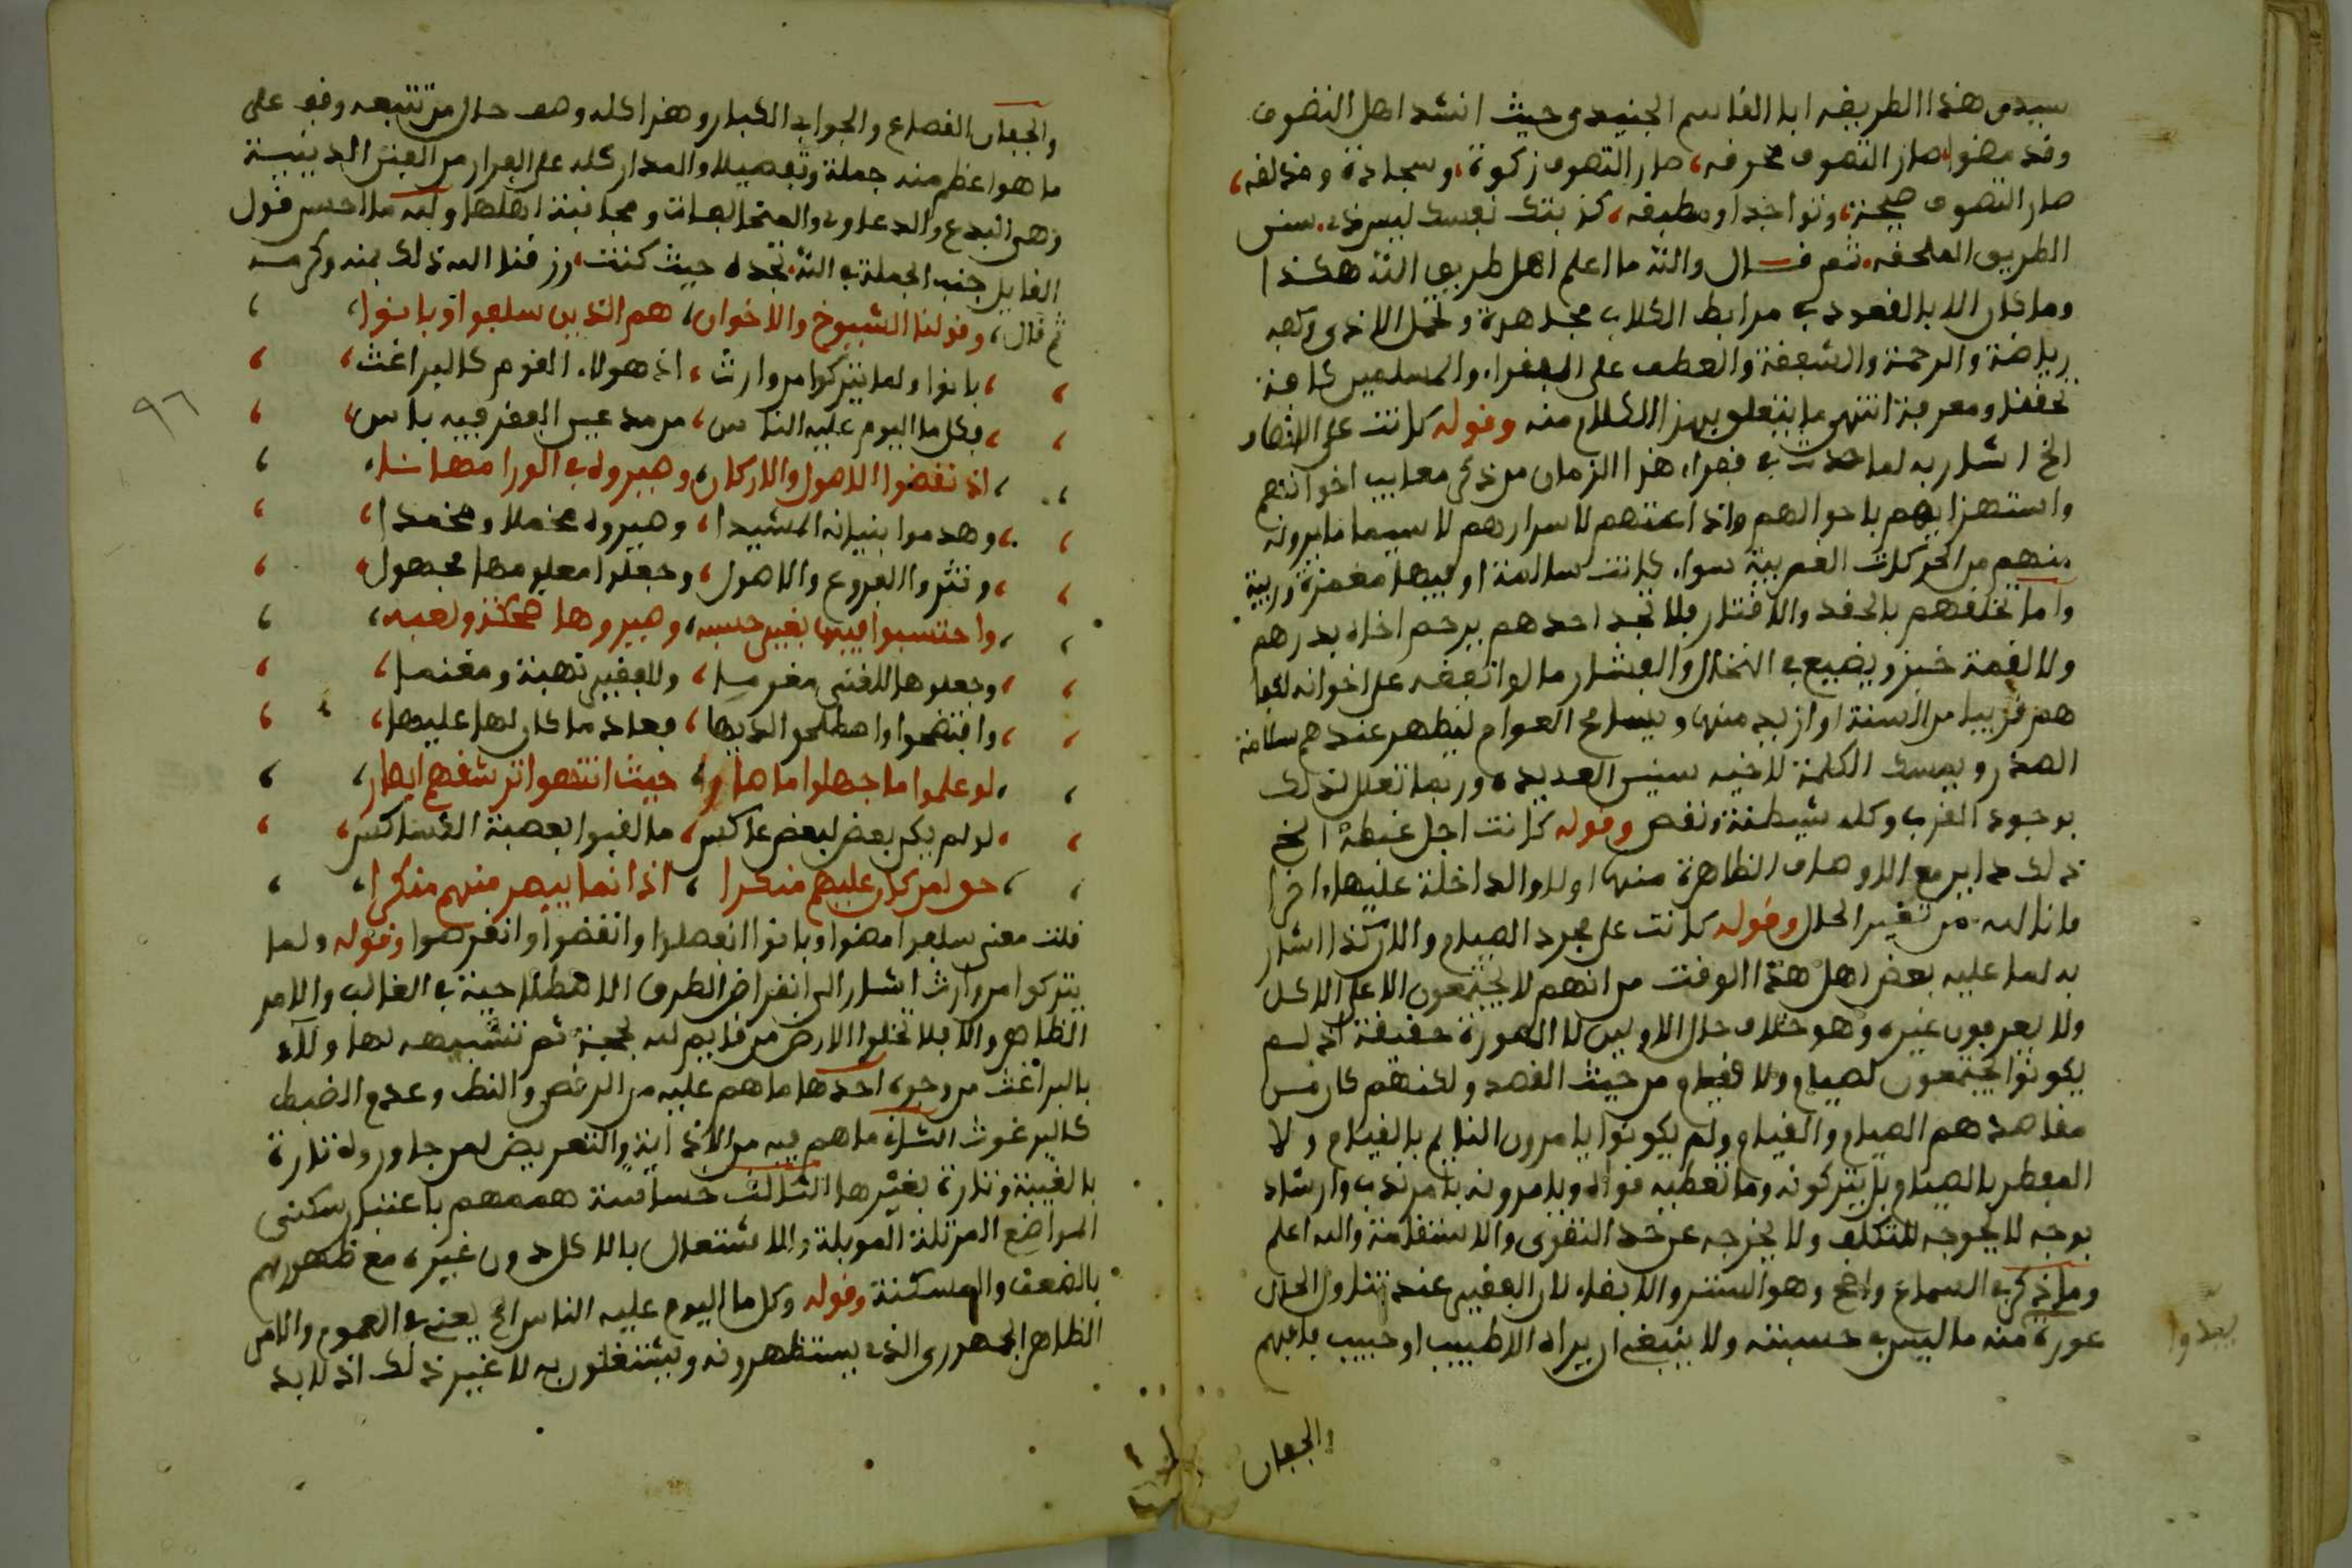 سيدى هذا الطريقه ابا القاسم الجنيدى حيث انشد اهل التصوف
وقد مضوا صار التصوف مخرقه، صار التصوف زكوة، وسجادة ومذلقه،
صار التصوف صيحة، وتواجدا ومطبقه، كذبتك نفسك ليس ذى سنن
الطريق الملحقه. ثم قال والله ما اعلم اهل طريق الله هكذا
وما كان الا بالقعود فى مرابط الكلاب مجاهدة وتحمل الاذى وكفه
رياضة والرحمة والشفقة والعطف على الفقراء والمسلمين كافة
تحققا ومعرفة انتهى ما يتعلق بهذا الكلام منه وقوله كانت على الانصاف
الخ اشار به لما حدث فى فقراء هذا الزمان من ذكر معايب اخوانهم
واستهزايهم باحوالهم واذاعتهم لاسرارهم لا سيما ما يرونه
منهم من الحركات الغريبة سواء كانت سالمة او فيها مغمزة وريبة
واما تخلقهم بالحقد والاقتار فلا تجد احدهم يرحم اخاه بدرهم
ولا لقمة خبز ويضيع فى النخال والفشار ما لو انفقه على اخوانه لكفا
هم قريبا من السنة او ازيد منها ويسامح العوام ليظهر عندهم سلامة
الصدر ويمسك الكلمة لاخيه سنين العديدة وربما تعلل لذلك
بوجود القرب وكله شيطنة ونقص وقوله كانت اجل غبطة الخ
ذلك داير مع الاوصاف الظاهرة منها اولا والداخلة عليها اخرا
فانا لله من تغير الحال وقوله كانت على مجرد الصيام والاركذا اشار
به لما عليه بعض اهل هذا الوقت من انهم لا يجتمعون الا على الاكل
ولا يعرفون غيره وهو خلاف حال الاولين لا الصورة حقيقة اذ لم
يكونوا يجتمعون لصيام ولا قيام من حيث القصد ولكنهم كان من
مقاصدهم الصيام والقيام ولم يكونوا يامرون النايم بالقيام ولا
المفطر بالصيام بل يتركونه وما تعطيه قواه ويامرونه بامر ندب وارشاد
بوجه لا يحوجه للتكلف ولا يخرجه عن حد التقوى والاستقامة والله اعلم
وما ذكر فى السماع واضح وهو الستر والابقاء لان الفقير عند تناول الحال
عورة منه ما ليس فى حسبته ولا ينبغى ان يراه الا طبيب او حبيب يفهم
يبدوا
والجفان
والجفان القصاع والجوابى الكبار وهذا كله وصف حال من تتبعه وقف على
ما هو اعظم منه جملة وتفصيلا والمدار كله على الفرار من الفتن الدينية
وهى البدع والدعاوى والمخالفات ومجانبة اهلها ولله ما احسن قول
القايل جنب الجملة فى الله تجده حيث كنت، رزقنا الله ذلك بمنه وكرمه
ثم قال، وقولنا الشيوخ والاخوان، هم الذين سلفوا وبانوا،
بانوا ولما يتركوا من وارث، اذ هولاء القوم كالبراغث،
فكل ما اليوم عليه الناس، من مدعين الفقر فيه باس،
اذ نقضوا الاصول والاركان، وصيروه فى الورا مهانا،
وهدموا بنيانه المشيدا، وصيروه مخملا ومخمدا،
ونثروا الفروع والاصول، وجعلوا معلومها مجهول،
واحتسبوا فيها بغير حسبه، وصيروها ضحكة ولعبه،
وجعلوها للغنى مغرما، وللفقير نهبة ومغنما،
وافتضحوا واصطلحوا لديها، فعاد ما كان لها عليها،
لو علموا ما جهلوا ما صاروا، حيث انتهوا تر شفهم ابصار،
لو لم يكن بعض لبعض عاكس، ما لقبوا بعصبة الكساكس،
حق لمن كان عليهم منكرا، اذ انما يبصر منهم منكرا،
قلت معنى سلفوا مضوا وبانوا انفصلوا وانقضوا وانقرضوا وقوله ولما
يتركوا من وارث اشار الى انقراض الطرق الاصطلاحية فى الغالب والامر
الظاهر والا فلا تخلوا الارض من قايم لله بحجة ثم تشبيهه لها ولاء
بالبراغث من وجوه احدها ما هم عليه من الرقص والنط وعدم الضبط
كالبرغوث الثانى ما هم فيه من الاذاية والتعريض لمن جاوروه تارة
بالغيبة وتارة بغيرها الثالث خساسة هممهم باعتبار سكنى
المواضع المزبلة الموبلة والاشتغال بالاكل دون غيره مع ظهورهم
بالضعف والمسكنة وقوله وكل ما اليوم عليه الناس الخ يعنى فى العموم والامر
الظاهر الجمهورى الذى يستظهرونه ويشتغلون به لا غير ذلك اذ لا بد
٩٦